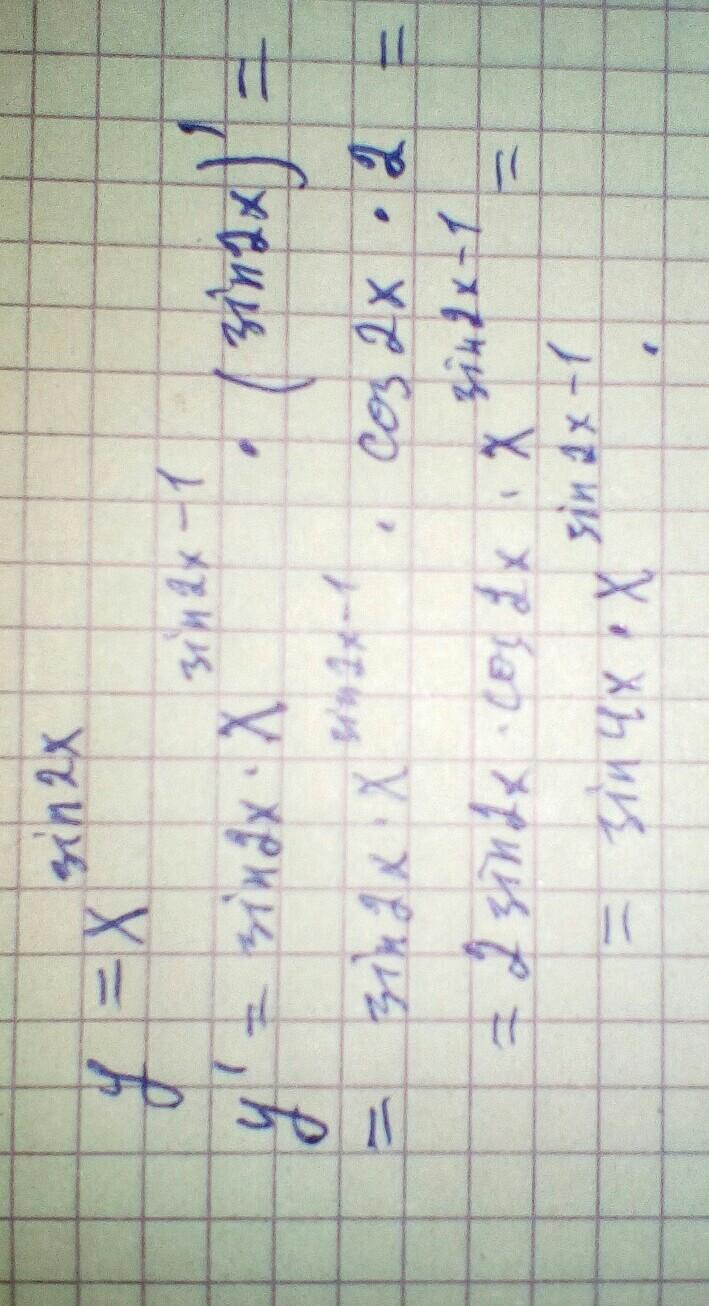 y = x^{sin2x}
y' = sin2x · x^{sin2x-1} · (sin2x)' =
= sin2x · x^{sin2x-1} · cos2x · 2 =
= 2sin2x · cos2x · x^{sin2x-1} =
= sin4x · x^{sin2x-1}.